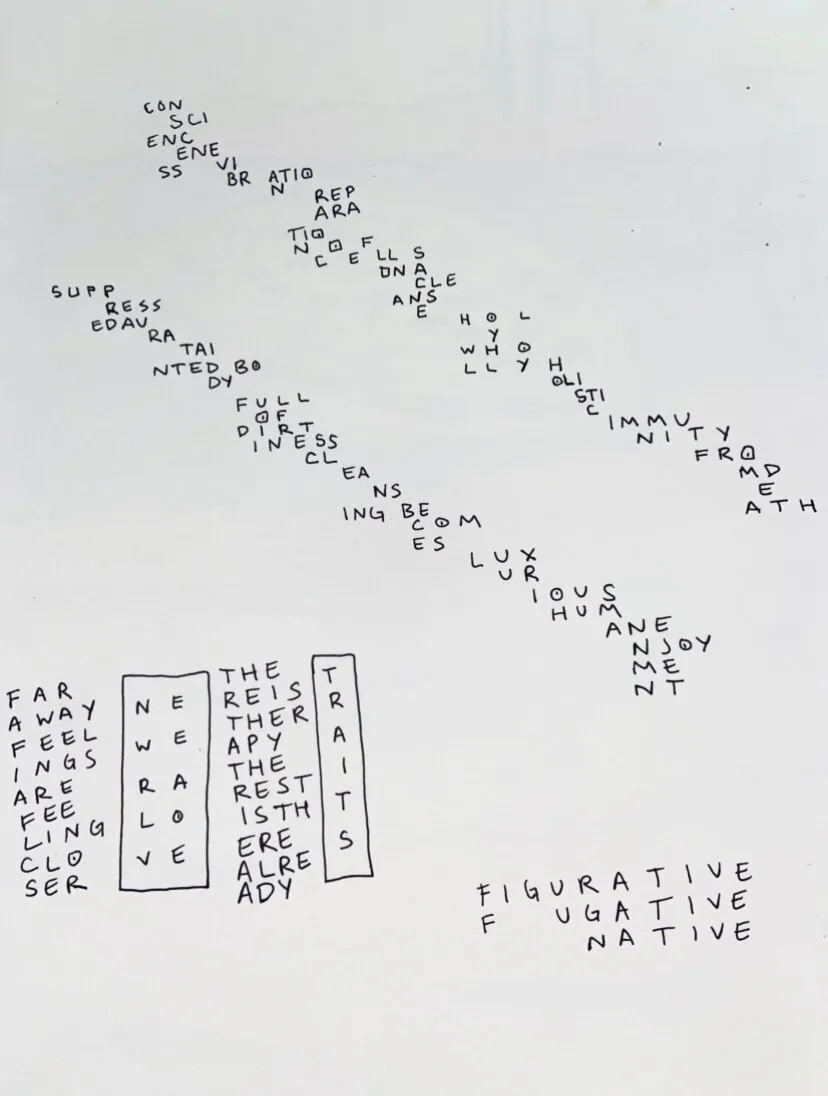 CON
SCI
ENC
ENE
SS VI
BR ATIO
N
REP
ARA
TIO
N O F
C E LL S
DNA
CLE
ANS
E
H O L
Y
W H O
L L Y
H
OLI
STI
C
IMMU
NITY
FRO
MD
E
ATH
SUPP
RESS
EDAU
RA
TAI
NTED BO
DY
FULL
OF
DIRT
INESS
CL
EA
NS
ING BE
COM
ES
LUX
UR
IOUS
HUM
ANE
NJOY
ME
NT
FAR
AWAY
FEEL
INGS
ARE
FEE
LING
CLO
SER
N E
W E
R A
L O
V E
THE
REIS
THER
APY
THE
REST
ISTH
ERE
ALRE
ADY
T
R
A
I
T
S
FIGURATIVE
F UGATIVE
NATIVE